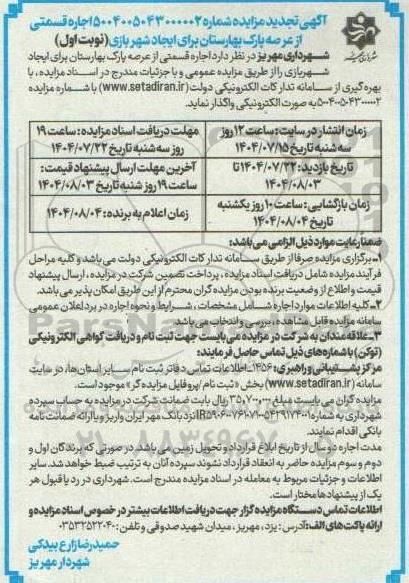 آگهی تجدید مزایده شماره ۵۰۰۴۰۰۵۰۴۳۰۰۰۰۰۲ اجاره قسمتی
از عرصه پارک بهارستان برای ایجاد شهربازی (نوبت اول)
شهرداری مهریز در نظر دارد اجاره قسمتی از عرصه پارک بهارستان برای ایجاد
شهربازی را از طریق مزایده عمومی و با جزئیات مندرج در اسناد مزایده، با
بهره‌گیری از سامانه تدارکات الکترونیکی دولت (www.setadiran.ir) با شماره مزایده
۵۰۰۴۰۰۵۰۴۳۰۰۰۰۰۲ به صورت الکترونیکی واگذار نماید.
زمان انتشار در سایت: ساعت ۱۲ روز
سه شنبه تاریخ ۱۴۰۴/۰۷/۱۵
مهلت دریافت اسناد مزایده: ساعت ۱۹
روز سه شنبه تاریخ ۱۴۰۴/۰۷/۲۲
تاریخ بازدید: ۱۴۰۴/۰۷/۲۲ تا
۱۴۰۴/۰۸/۰۳
آخرین مهلت ارسال پیشنهاد قیمت:
ساعت ۱۹ روز شنبه تاریخ ۱۴۰۴/۰۸/۰۳
زمان بازگشایی: ساعت ۱۰ روز یکشنبه
تاریخ ۱۴۰۴/۰۸/۰۴
زمان اعلام به برنده: ۱۴۰۴/۰۸/۰۴
ضمنا رعایت موارد ذیل الزامی می باشد:
۱ـ برگزاری مزایده صرفا از طریق سامانه تدارکات الکترونیکی دولت می باشد و کلیه مراحل
فرآیند مزایده شامل دریافت اسناد مزایده، پرداخت تضمین شرکت در مزایده، ارسال پیشنهاد
قیمت و اطلاع از وضعیت برنده بودن مزایده گران محترم از این طریق امکان پذیر می باشد.
۲ـ کلیه اطلاعات موارد اجاره شامل مشخصات، شرایط و نحوه اجاره در برد اعلان عمومی
سامانه مزایده قابل مشاهده، بررسی و انتخاب می باشد
۳ـ علاقه مندان به شرکت در مزایده می بایست جهت ثبت نام و دریافت گواهی الکترونیکی
(توکن) با شماره های ذیل تماس حاصل فرمایند:
مرکز پشتیبانی و راهبری: ۱۴۵۶ـ اطلاعات تماس دفاتر ثبت نام سایر استان ها، در سایت
سامانه (www.setadiran.ir) بخش «ثبت نام/پروفایل مزایده گر» موجود است.
مزایده گران می بایست مبلغی ۳۵,۷۰۰,۰۰۰ ریال بابت ضمانت شرکت در مزایده به حساب سپرده
نزد بانک مهر ایران واریز و یا ارائه ضمانت نامه
بانکی اقدام نمایند.
مدت اجاره دو سال از تاریخ ابلاغ قرارداد و تحویل زمین می باشد، در صورتی که برندگان اول و
دوم و سوم مزایده حاضر به انعقاد قرارداد نشوند سپرده آنان به ترتیب ضبط خواهد شد. سایر
اطلاعات و جزئیات مربوط به معامله در اسناد مزایده مندرج است. شهرداری در رد یا قبول هر
یک از پیشنهادها مختار است.
اطلاعات تماس دستگاه مزایده گزار جهت دریافت اطلاعات بیشتر در خصوص اسناد مزایده و
ارائه پاکت های الف: آدرس: یزد، مهریز، میدان شهید صدوقی و تلفن: ۰۳۵۳۲۵۲۲۰۴۰
حمیدرضا زارع بیدکی
شهردار مهریز